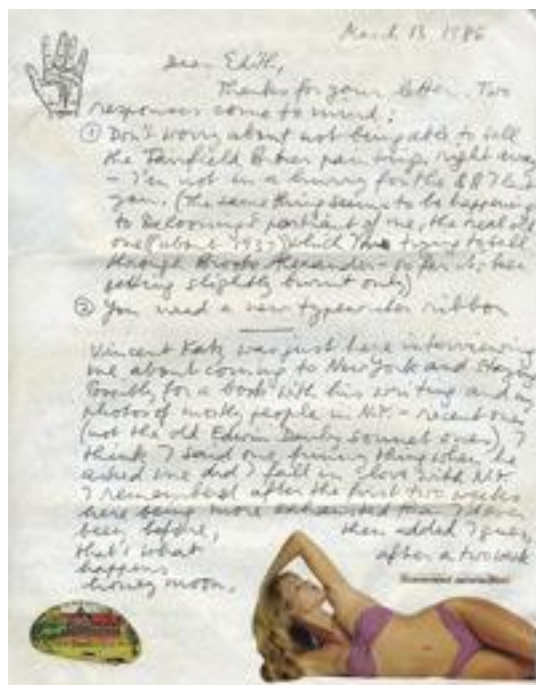 March 13 1986
Dear Edith,
Thanks for your letter. Two
responses come to mind:
① Don't worry about not being able to sell
the Fairfield Porter paintings right away
- I'm not in a hurry for the $ I lent
you. (the same thing seems to be happening
to DeKooning's portrait of me, the real old
one (about 1937) which I'm trying to sell
through Brooke Alexander - so far it's been
getting slightly burnt only)
② You need a new typewriter ribbon
Vincent Katz was just here interviewing
me about coming to New York and staying
Possibly for a book with his writing and my
photos of mostly people in N.Y. - recent ones
(not the old Edwin Denby Sonnet ones). I
think I said one funny thing when he
asked me did I fall in love with N.Y.
I remembered after the first two weeks
here being more exhausted than I'd ever
been before, then added I guess
that's what after a two week
happens
honey moon.